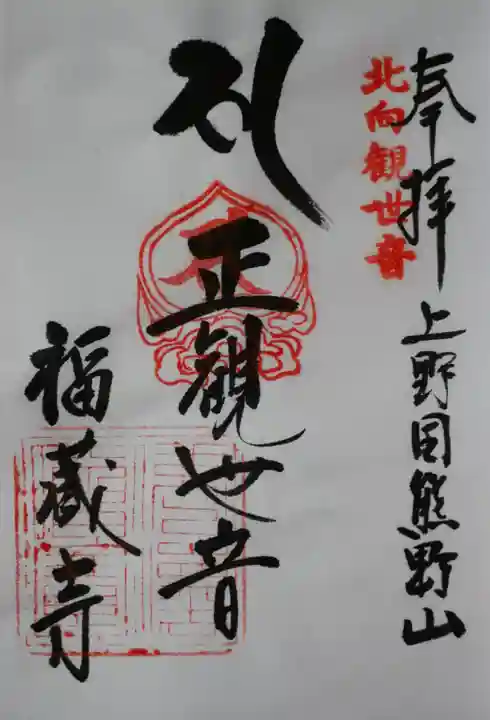 奉拝
北向観世音
上野田熊野山
正観世音
福蔵寺